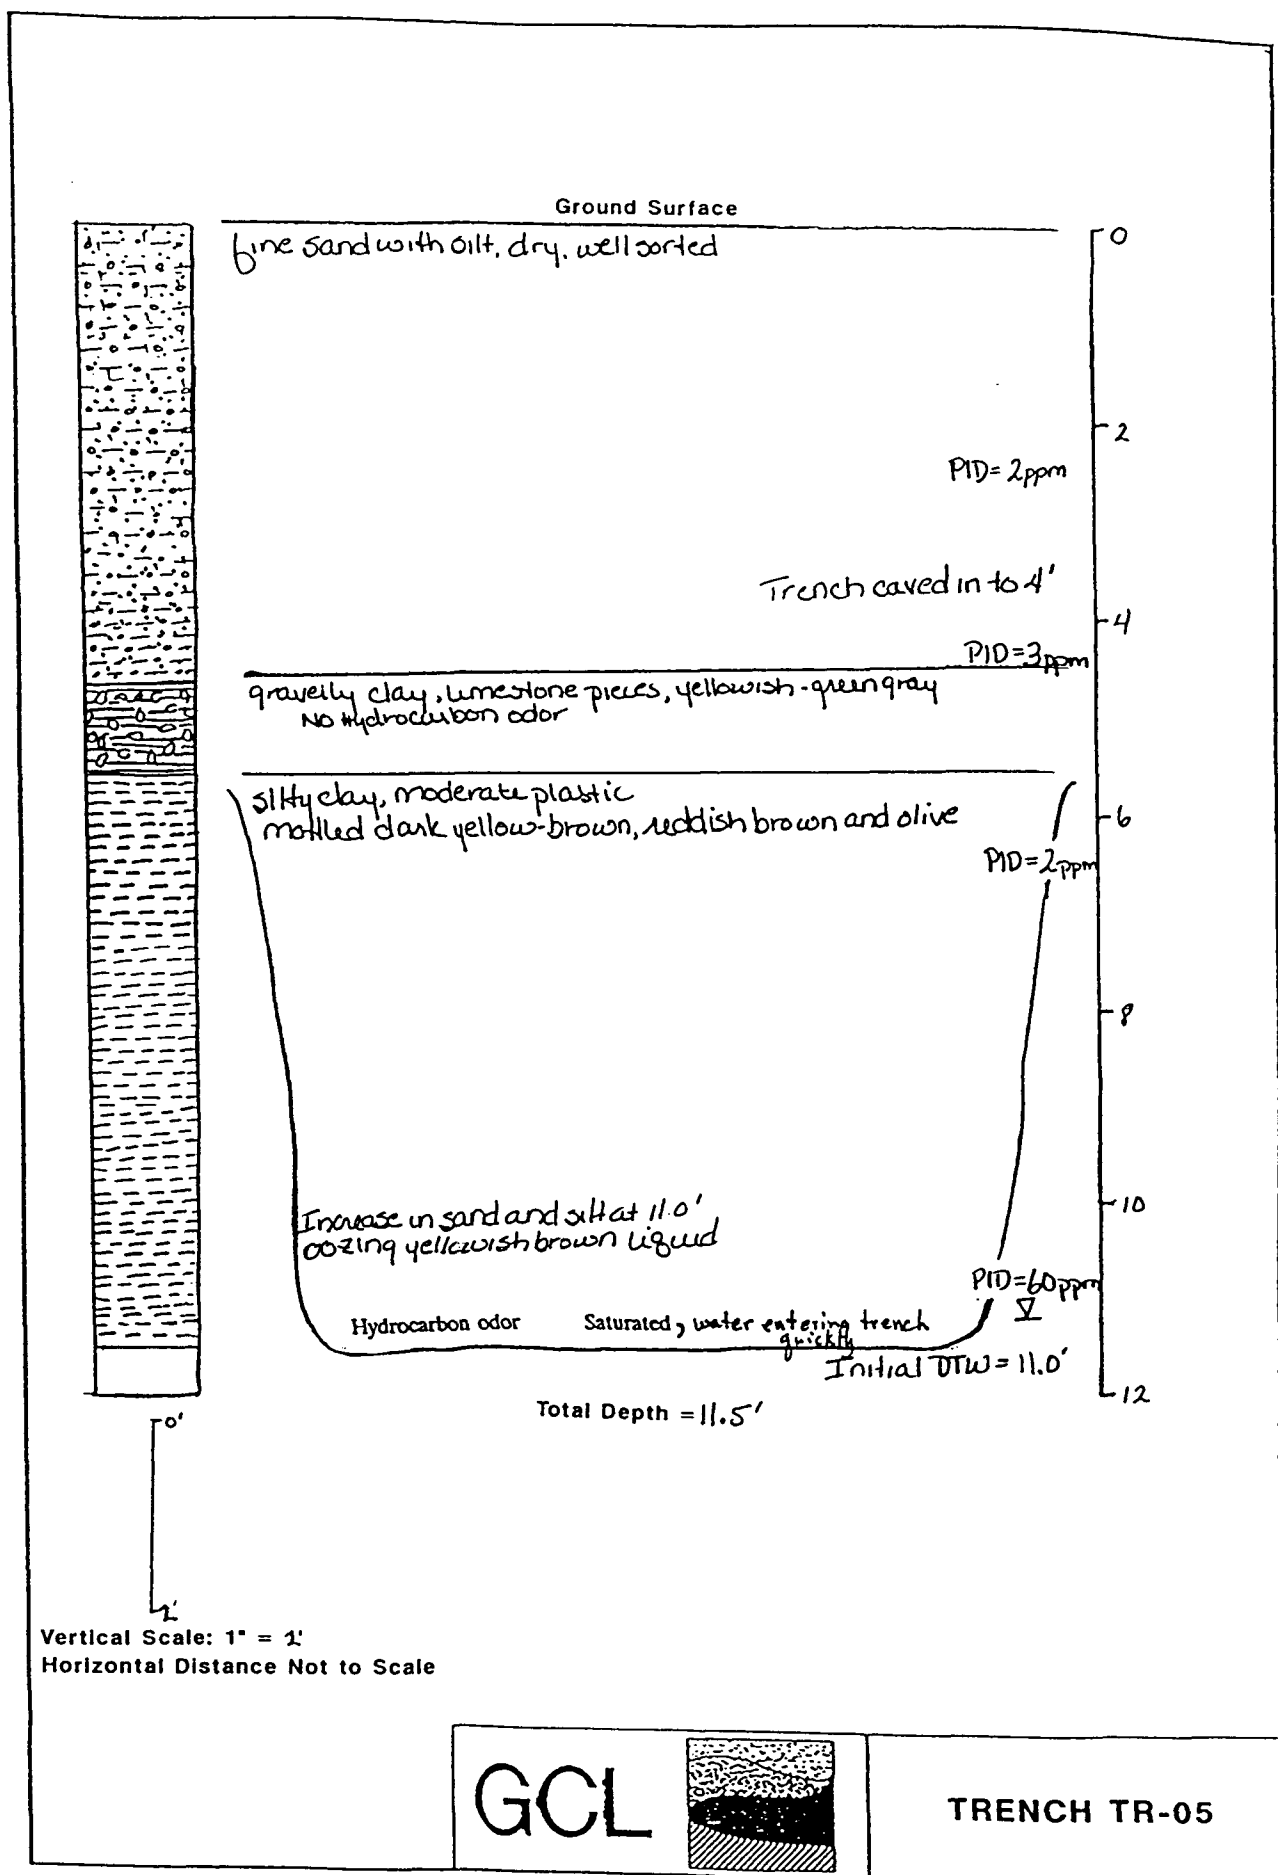 Ground Surface
fine sand with silt, dry, well sorted
0
2
PID=2ppm
Trench caved in to 4'
4
PID=3ppm
gravelly clay, limestone pieces, yellowish-green gray
No Hydrocarbon odor
silty clay, moderate plastic
mottled dark yellow-brown, reddish brown and olive
6
PID=2ppm
8
10
Increase in sand and silt at 11.0'
oozing yellowish brown liquid
PID=60ppm
Hydrocarbon odor Saturated, water entering trench
quickly
Initial DTW = 11.0'
12
Total Depth = 11.5'
0'
2'
Vertical Scale: 1" = 2'
Horizontal Distance Not to Scale
GCL
TRENCH TR-05